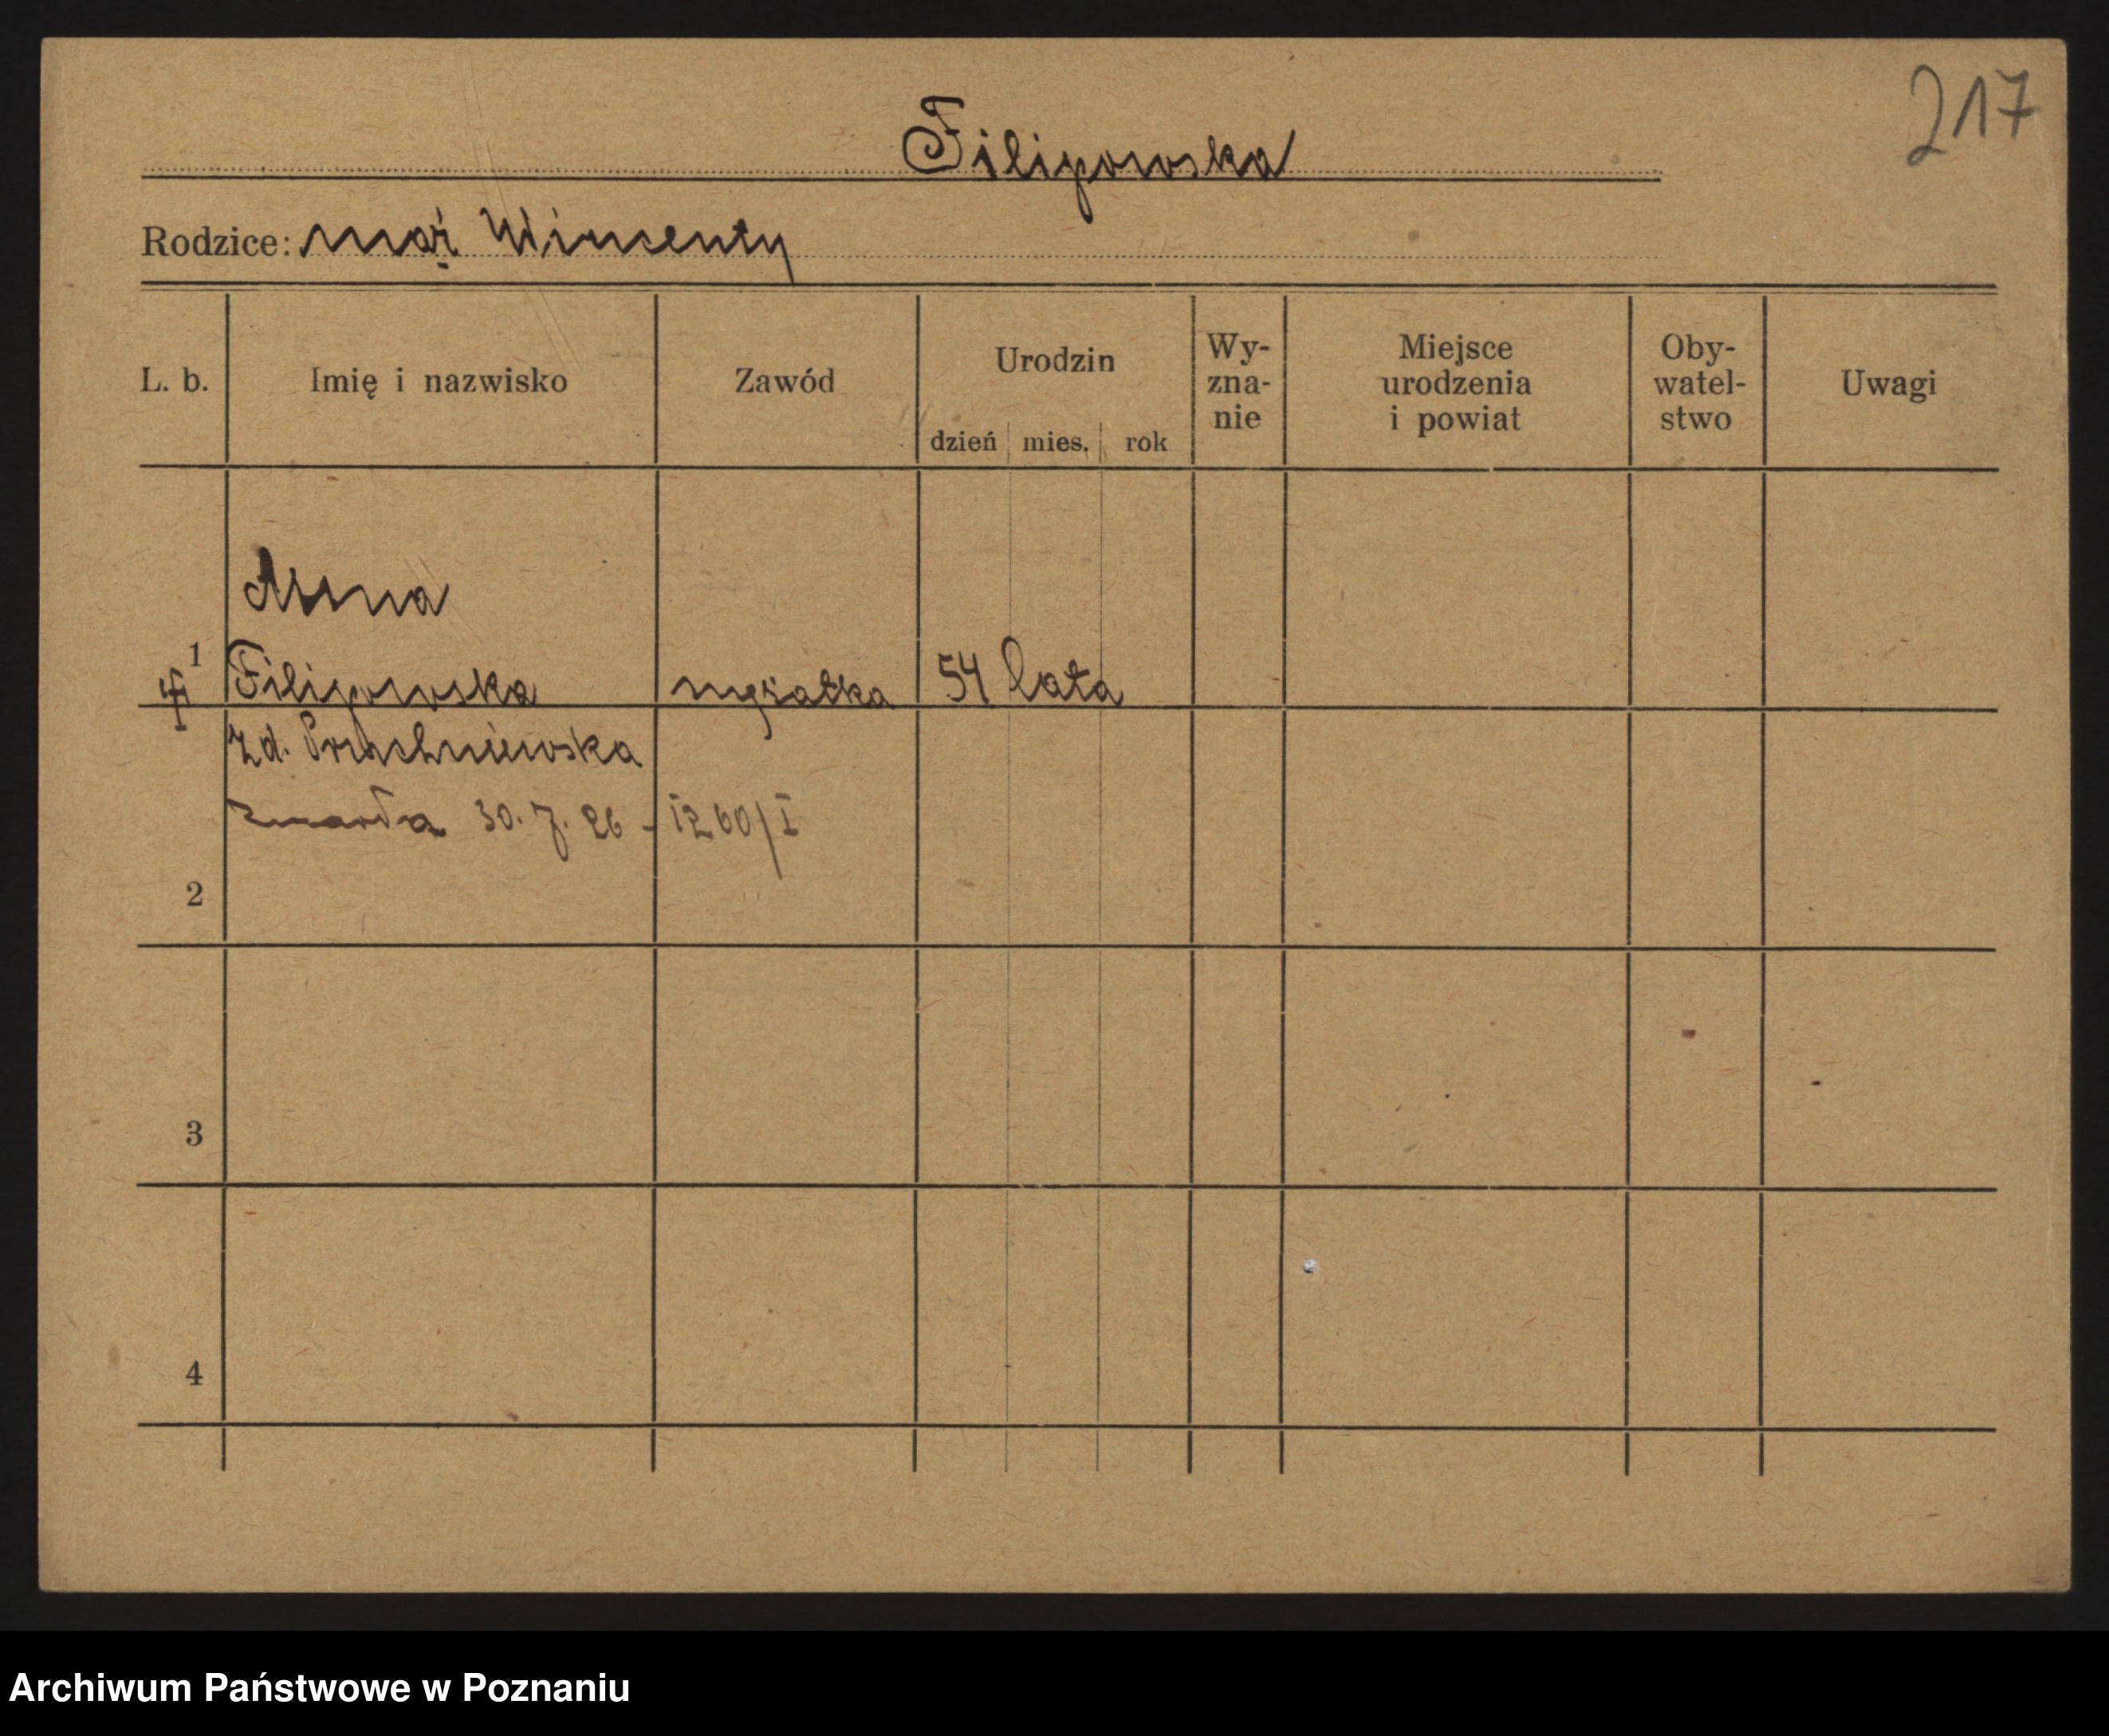 217
Filipowska
Rodzice: mąż Wincenty
L. b. Imię i nazwisko Zawód Urodzin dzień mies. rok Wy-zna-nie Miejsce urodzenia i powiat Oby-watel-stwo Uwagi
Anna
1 Filipowska mężatka 54 lata
zd.
zmarła 30. 7. 26 - 1260/I
2
3
4
Archiwum Państwowe w Poznaniu